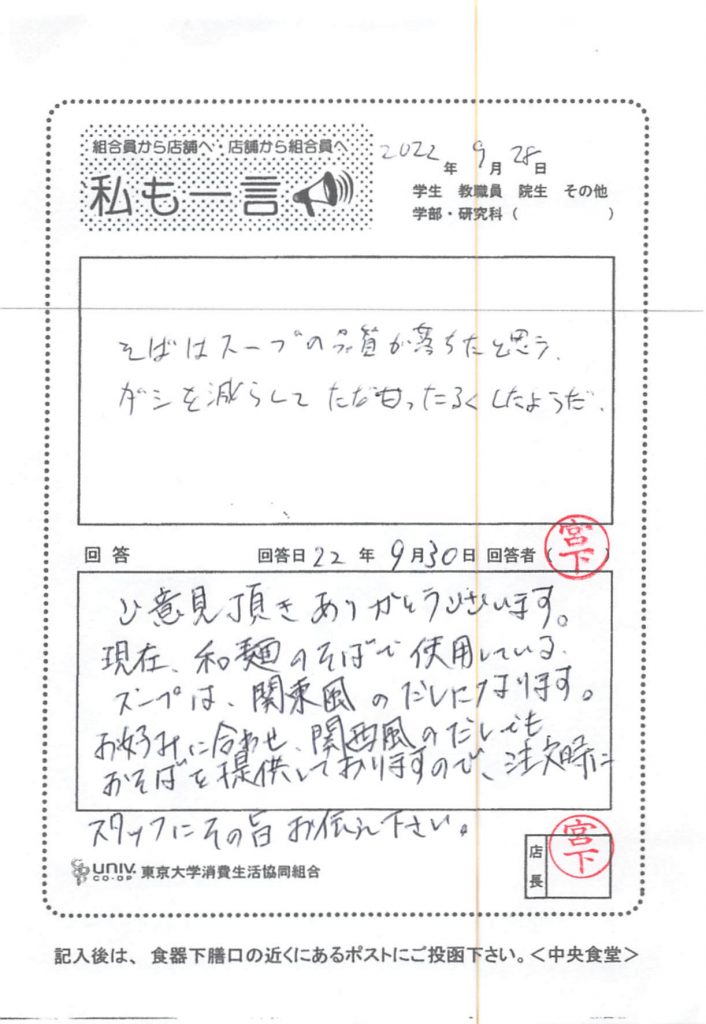 組合員から店舗へ・店舗から組合員へ
私も一言
2022年 9月 28日
学生 教職員 院生 その他
学部・研究科（ ）
そばはスープの品質が落ちたと思う.
ダシを減らして ただ甘ったるくしたようだ.
回答 回答日 22 年 9月30日 回答者（宮下）
ご意見頂きありがとうございます。
現在、和麺のそばで使用している、
スープは、関東風のだしになります。
お好みに合わせ、関西風のだしでも
おそばを提供しておりますので、注文時に
スタッフにその旨お伝え下さい。
UNIV. CO-OP 東京大学消費生活協同組合
店長 宮下
記入後は、食器下膳口の近くにあるポストにご投函下さい。＜中央食堂＞